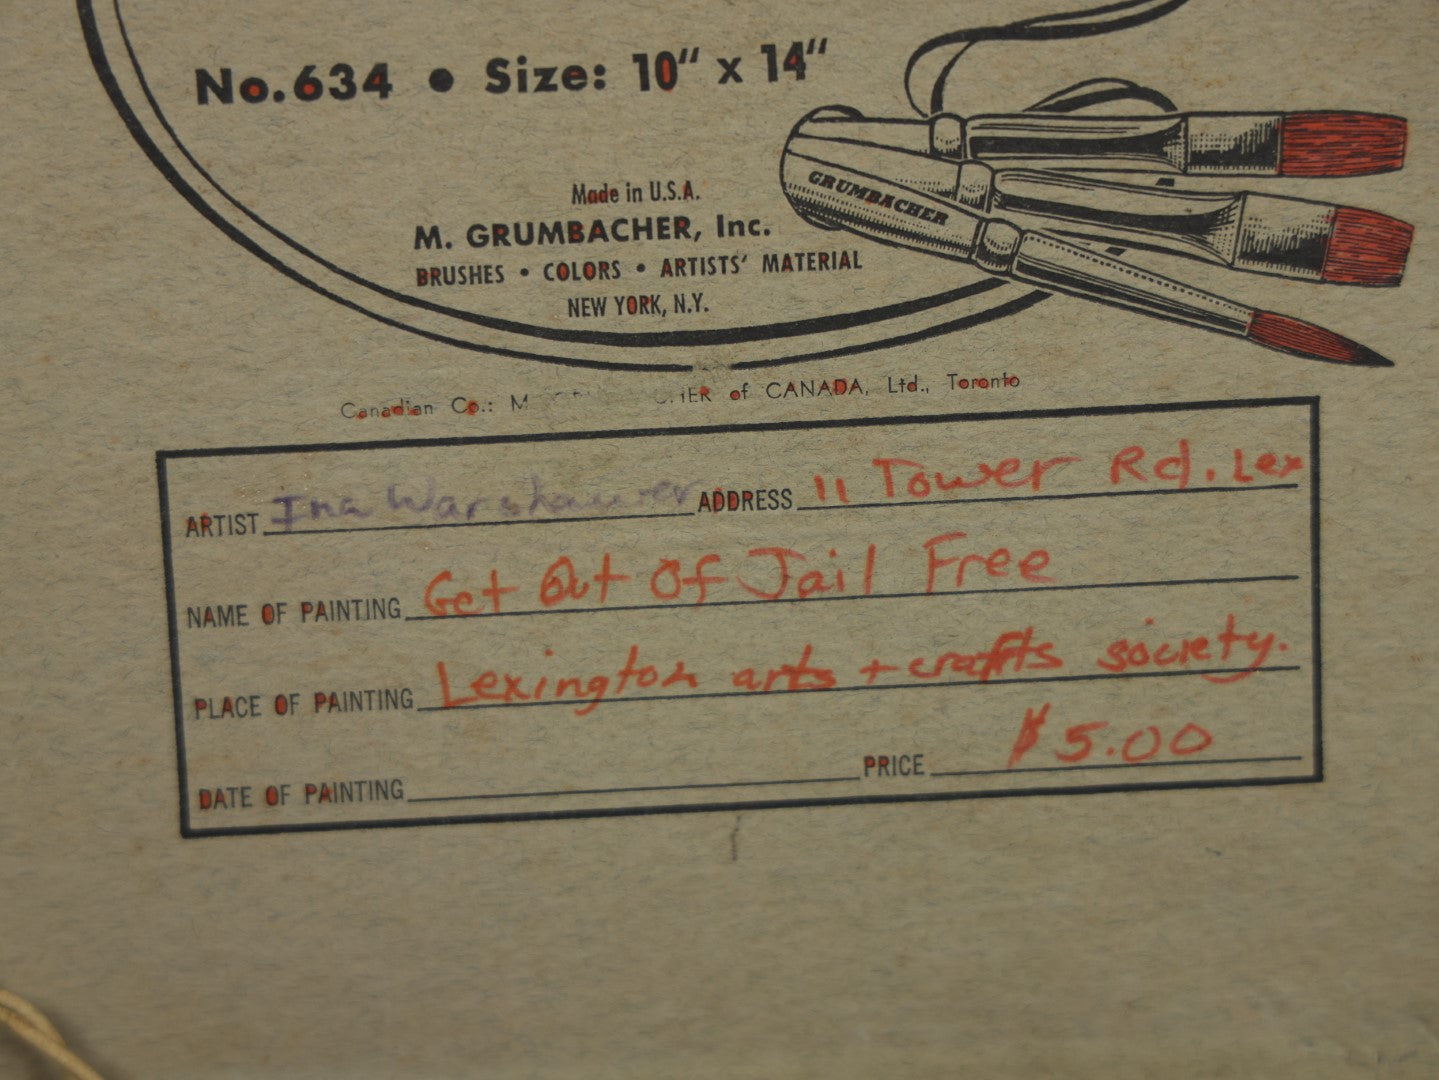 No. 634 • Size: 10" x 14"
GRUMBACHER
Made in U.S.A.
M. GRUMBACHER, Inc.
BRUSHES • COLORS • ARTISTS' MATERIAL
NEW YORK, N.Y.
Canadian Co.: M of CANADA, Ltd., Toronto
ARTIST Ina Warshawer ADDRESS 11 Tower Rd. Lex
NAME OF PAINTING Get Out Of Jail Free
PLACE OF PAINTING Lexington arts + crafts society.
PRICE $5.00
DATE OF PAINTING